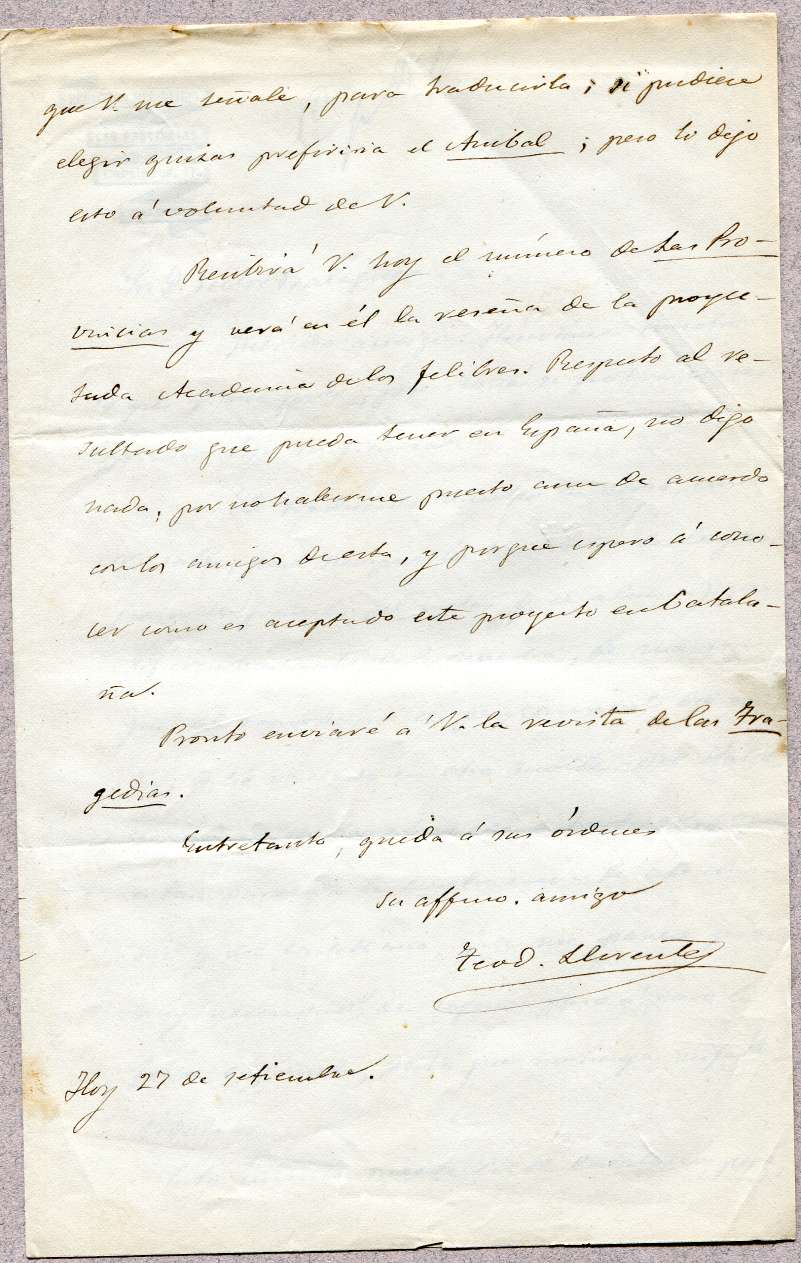 que V. me señale, para traducirla; si pudiese
elegir quizas prefiriria el Anibal; pero lo dejo
esto á voluntad de V.
Recibirá V. hoy el número de Las Pro-
vincias y verá en él la reseña de la proyec-
tada Academia de los felibres. Respecto al re-
sultado que pueda tener en España, no digo
nada, por no haberme puesto aun de acuerdo
con los amigos de esta, y porque espero á cono-
cer como es aceptado este proyecto en Catalu-
ña.
Pronto enviaré á V. la revista de las Tra-
gedias.
Entretanto, queda á sus órdenes
su affmo. amigo
Teod. Llorente
Hoy 27 de setiembre.